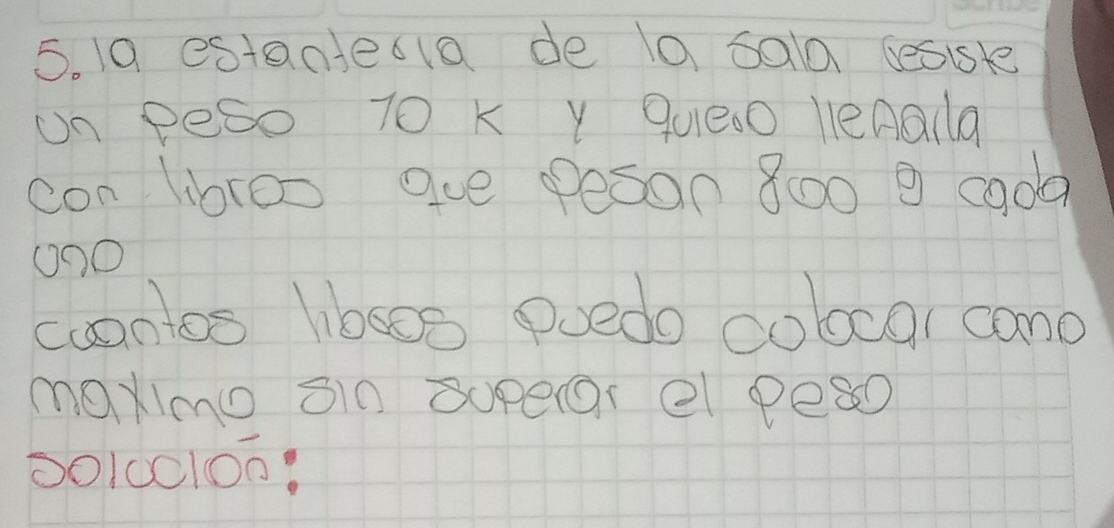 5. la estantería de la sala resiste
un peso 70 K y quiero llenarla
con libros que pesan 800 g cada
uno
cuantos libros puedo colocar como
maximo sin superar el peso
solución: